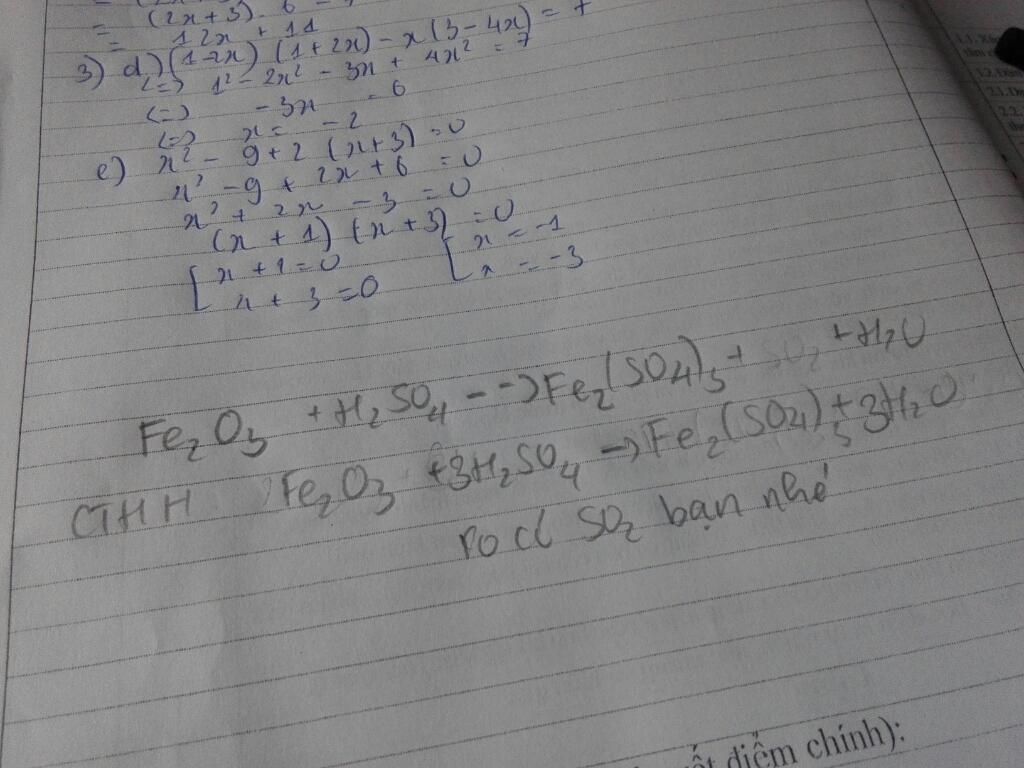 (2x+3). 6
= 12x + 11
3) d) (1-2x) (1+2x) - x (3-4x) = 7
<=> 1² - 2x² - 3x + 4x² = 7
<=> -3x = 6
<=> x = -2
e) x² - 9 + 2 (x+3) = 0
x² - 9 + 2x + 6 = 0
x² + 2x - 3 = 0
(x + 1) (x+3) = 0
[ x + 1 = 0 [ x = -1
x + 3 = 0 x = -3
Fe₂O₃ + H₂SO₄ --> Fe₂(SO₄)₃ + SO₂ + H₂O
CTHH Fe₂O₃ + 3H₂SO₄ -> Fe₂(SO₄)₃ + 3H₂O
SO₂ bạn nhé
điểm chính):